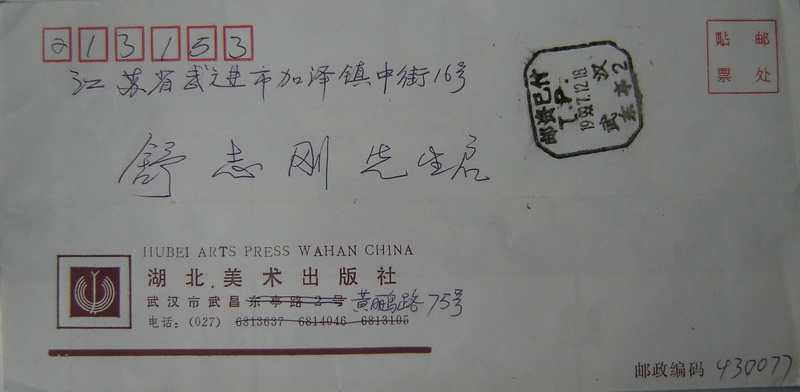 213153
贴 邮
票 处
江苏省武进市加泽镇中街16号
邮资已付
T.P.
1997.12.18
武汉
东亭2
舒志刚先生启
HUBEI ARTS PRESS WAHAN CHINA
湖北美术出版社
武汉市武昌东亭路2号黄鹂路75号
电话:(027) 6813637 6814046 6813105
邮政编码 430077